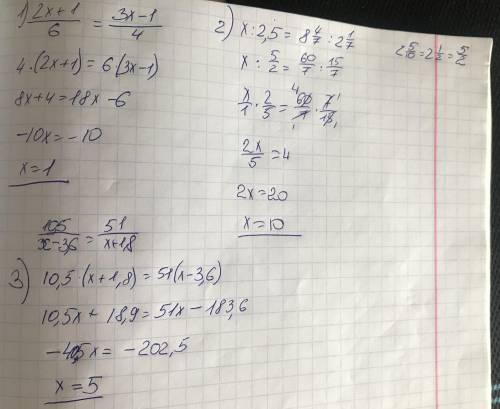 1) (2x+1)/6 = (3x-1)/4
4·(2x+1)=6(3x-1)
8x+4=18x-6
-10x=-10
x=1
2) x:2,5=8 4/7:2 1/7
2 5/10=2 1/2=5/2
x:5/2=60/7:15/7
x/1·2/5=60/7·7/15
4 1 1 1
2x/5=4
2x=20
x=10
3) 10,5/(x-3,6)=51/(x+1,8)
10,5·(x+1,8)=51(x-3,6)
10,5x+18,9=51x-183,6
-40,5x=-202,5
x=5